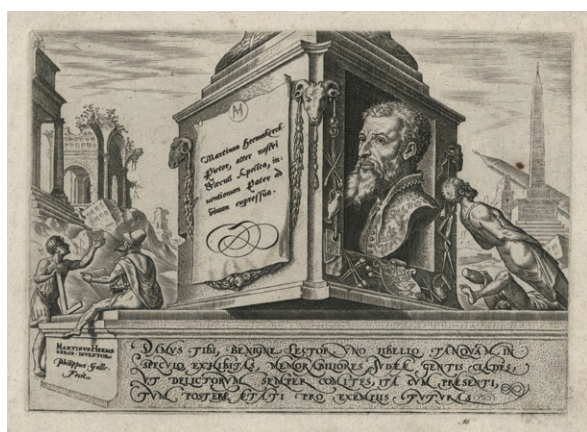 M
Martinus Heemskerck
Pictor, alter nostri
Sæculi Apelles, in-
ventionum Pater ad
vivum expressus.
MARTINVS HEEMS
KERCK INVENTOR.
Philippus Galle
Fecit.
DAMVS TIBI, BENIGNE LECTOR, VNO LIBELLO TANQVAM IN
SPECVLO EXHIBITAS, MEMORABILIORES IVDEÆ GENTIS CLADES,
VT DELICTORVM SEMPER COMITES, ITA CVM PRÆSENTI,
TVM POSTERÆ ÆTATI PRO EXEMPLIS FVTVRAS.